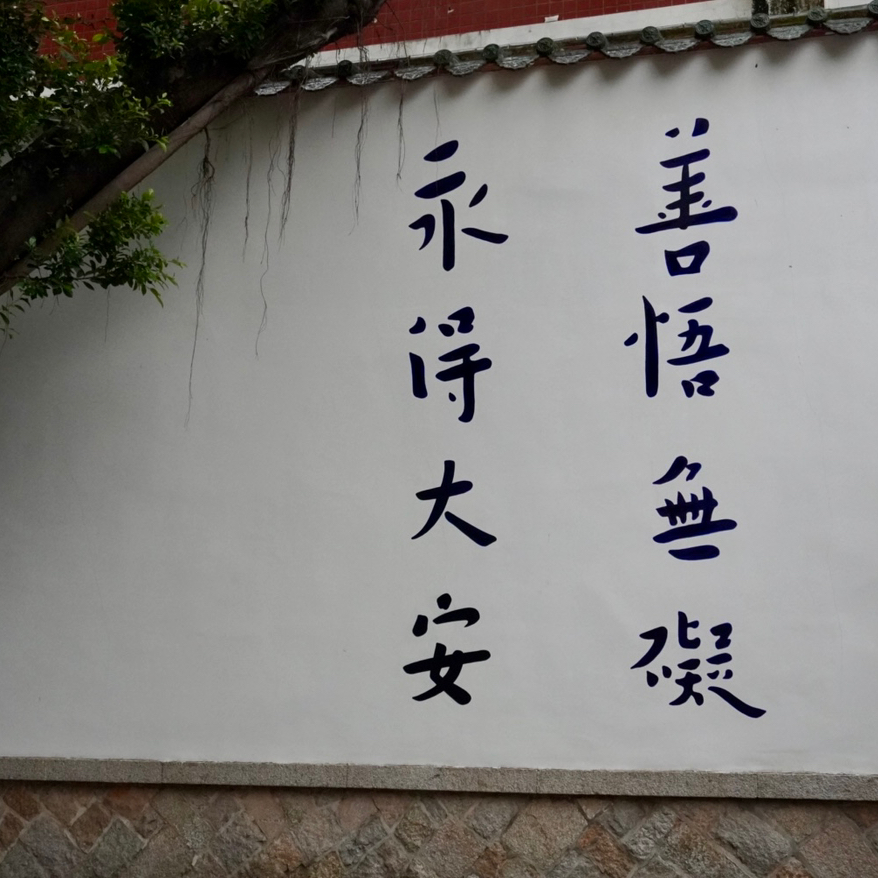 善悟無礙
永得大安